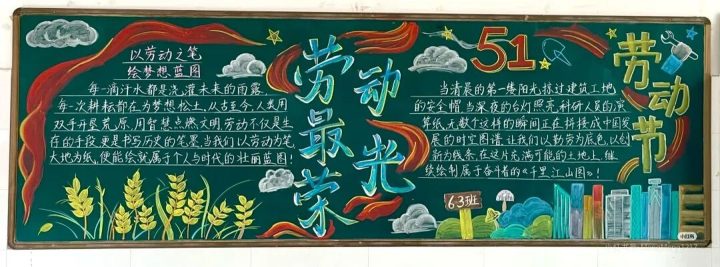 以劳动之笔
绘梦想蓝图
每一滴汗水都是浇灌未来的雨露,
每一次耕耘都在为梦想松土,从古至今,人类用
双手开垦荒原,用智慧点燃文明,劳动不仅是生
存的手段,更是书写历史的笔墨,当我们以劳动为笔,
大地为纸,便能绘就属于个人与时代的壮丽蓝图!
劳动
最光
荣
51
劳动节
当清晨的第一缕阳光掠过建筑工地
的安全帽,当深夜的台灯照亮科研人员的演
算纸,无数个这样的瞬间正在拼接成中国发
展的时空图谱,让我们以勤劳为底色,以创
新为线条,在这片充满可能的土地上,继
续绘制属于奋斗者的《千里江山图》!
6.3班
小红书